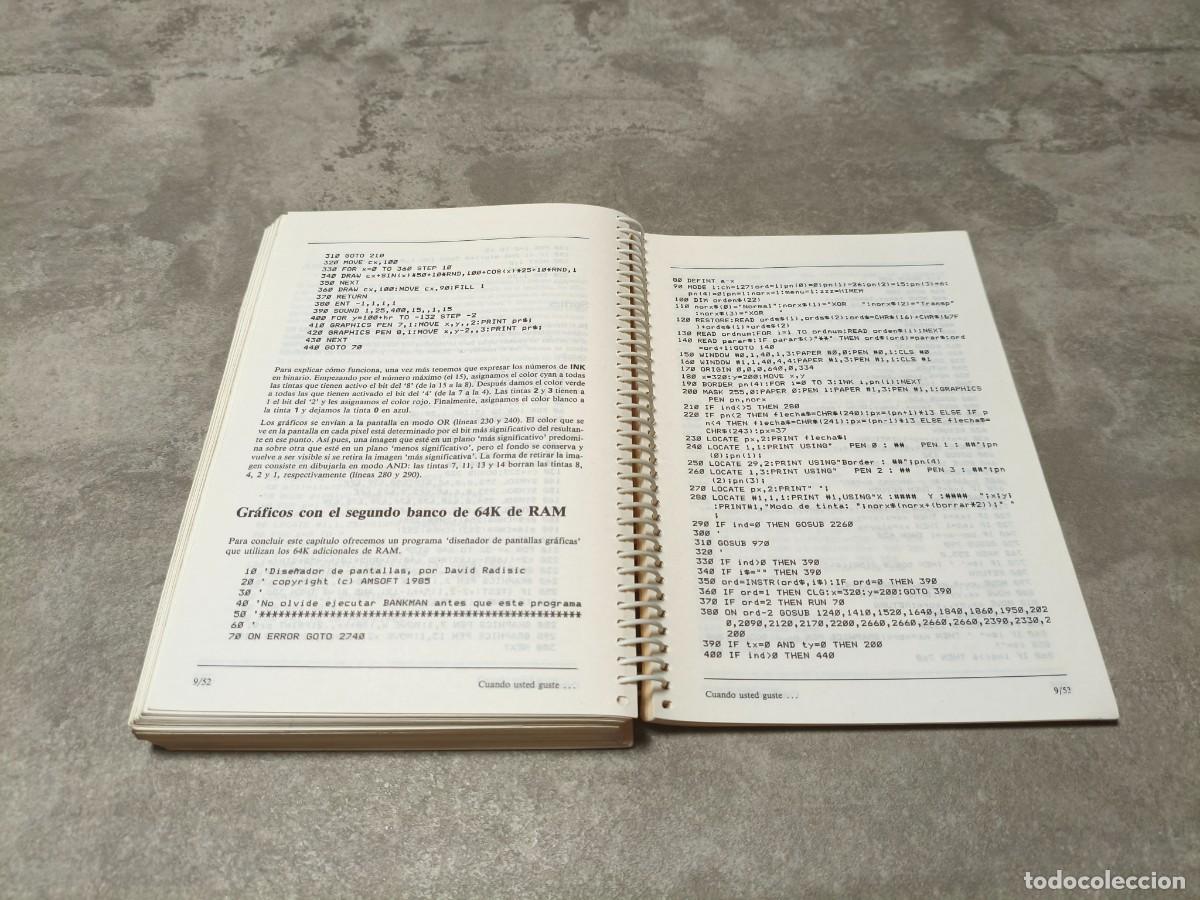 310 GOTO 210
320 MOVE cx,100
330 FOR x=0 TO 360 STEP 10
340 DRAW cx+SIN(x)*50+10*RND,100+COS(x)*25+10*RND,1
350 NEXT
360 DRAW cx,100:MOVE cx,90:FILL 1
370 RETURN
380 ENT -1,1,1,1
390 SOUND 1,25,400,15,,1,15
400 FOR y=100+hr TO -132 STEP -2
410 GRAPHICS PEN 7,1:MOVE x,y,,2:PRINT pr$;
420 GRAPHICS PEN 0,1:MOVE x,y-2,,3:PRINT pr$;
430 NEXT
440 GOTO 70
Para explicar cómo funciona, una vez más tenemos que expresar los números de INK
en binario. Empezando por el número máximo (el 15), asignamos el color cyan a todas
las tintas que tienen activo el bit del '8' (de la 15 a la 8). Después damos el color verde
a todas las que tienen activado el bit del '4' (de la 7 a la 4). Las tintas 2 y 3 tienen a
1 el bit del '2' y les asignamos el color rojo. Finalmente, asignamos el color blanco a
la tinta 1 y dejamos la tinta 0 en azul.
Los gráficos se envían a la pantalla en modo OR (líneas 230 y 240). El color que se
ve en la pantalla en cada pixel está determinado por el bit más significativo del resultan-
te en ese punto. Así pues, una imagen que esté en un plano 'más significativo' predomi-
na sobre otra que esté en un plano 'menos significativo', pero el fondo se conserva y
vuelve a ser visible si se retira la imagen 'más significativa'. La forma de retirar la ima-
gen consiste en dibujarla en modo AND: las tintas 7, 11, 13 y 14 borran las tintas 8,
4, 2 y 1, respectivamente (líneas 280 y 290).
Gráficos con el segundo banco de 64K de RAM
Para concluir este capítulo ofrecemos un programa 'diseñador de pantallas gráficas'
que utilizan los 64K adicionales de RAM.
10 'Diseñador de pantallas, por David Radisic
20 ' copyright (c) AMSOFT 1985
30 '
40 'No olvide ejecutar BANKMAN antes que este programa
50 '******************************************
60 '
70 ON ERROR GOTO 2740
9/52
Cuando usted guste ...
80 DEFINT a-x
90 MODE 1:ch=127:ord=1:pn(0)=0:pn(1)=26:pn(2)=15:pn(3)=6:
pn(4)=0:pn=1:norx=1:menu=1:zzz=HIMEM
100 DIM orden$(22)
110 norx$(0)="Normal":norx$(1)="XOR ":norx$(2)="Transp"
:norx$(3)="XOR "
120 RESTORE:READ ordes$(1),ordes$(2):ord$=CHR$(16)+CHR$(&7F
)+ordes$(1)+ordes$(2)
130 READ ordnum:FOR i=1 TO ordnum:READ orden$(i):NEXT
140 READ parar$:IF parar$<>"**" THEN ord$(ord)=parar$:ord
=ord+1:GOTO 140
150 WINDOW #0,1,40,1,3:PAPER #0,0:PEN #0,1:CLS #0
160 WINDOW #1,1,40,4,4:PAPER #1,3:PEN #1,1:CLS #1
170 ORIGIN 0,0,0,640,0,334
180 x=320:y=200:MOVE x,y
190 BORDER pn(4):FOR i=0 TO 3:INK i,pn(i):NEXT
200 MASK 255,0:PAPER 0:PEN 1:PAPER #1,3:PEN #1,1:GRAPHICS
PEN pn,norx
210 IF ind<>5 THEN 280
220 IF pn(2 THEN flecha$=CHR$(240):px=(pn+1)*13 ELSE IF p
n(4 THEN flecha$=CHR$(241):px=(pn-1)*13 ELSE flecha$=
CHR$(243):px=37
230 LOCATE px,2:PRINT flecha$;
240 LOCATE 1,1:PRINT USING" PEN 0 : ## PEN 1 : ##";pn
(0);pn(1);
250 LOCATE 29,2:PRINT USING"Border : ##";pn(4)
260 LOCATE 1,3:PRINT USING" PEN 2 : ## PEN 3 : ##";pn
(2);pn(3);
270 LOCATE px,2:PRINT" ";
280 LOCATE #1,1,1:PRINT #1,USING"X :#### Y :#### ";x;y;
:PRINT#1,"Modo de tinta: ";norx$(norx+(borrar*2));" "
;
290 IF ind=0 THEN GOSUB 2260
300 '
310 GOSUB 970
320 '
330 IF ind>0 THEN 390
340 IF i$="" THEN 390
350 ord=INSTR(ord$,i$):IF ord=0 THEN 390
360 IF ord=1 THEN CLG:x=320:y=200:GOTO 390
370 IF ord=2 THEN RUN 70
380 ON ord-2 GOSUB 1240,1410,1520,1640,1840,1860,1950,202
0,2090,2120,2170,2200,2660,2660,2660,2660,2390,2330,2
200
390 IF tx=0 AND ty=0 THEN 200
400 IF ind>0 THEN 440
Cuando usted guste ...
9/53
todocoleccion